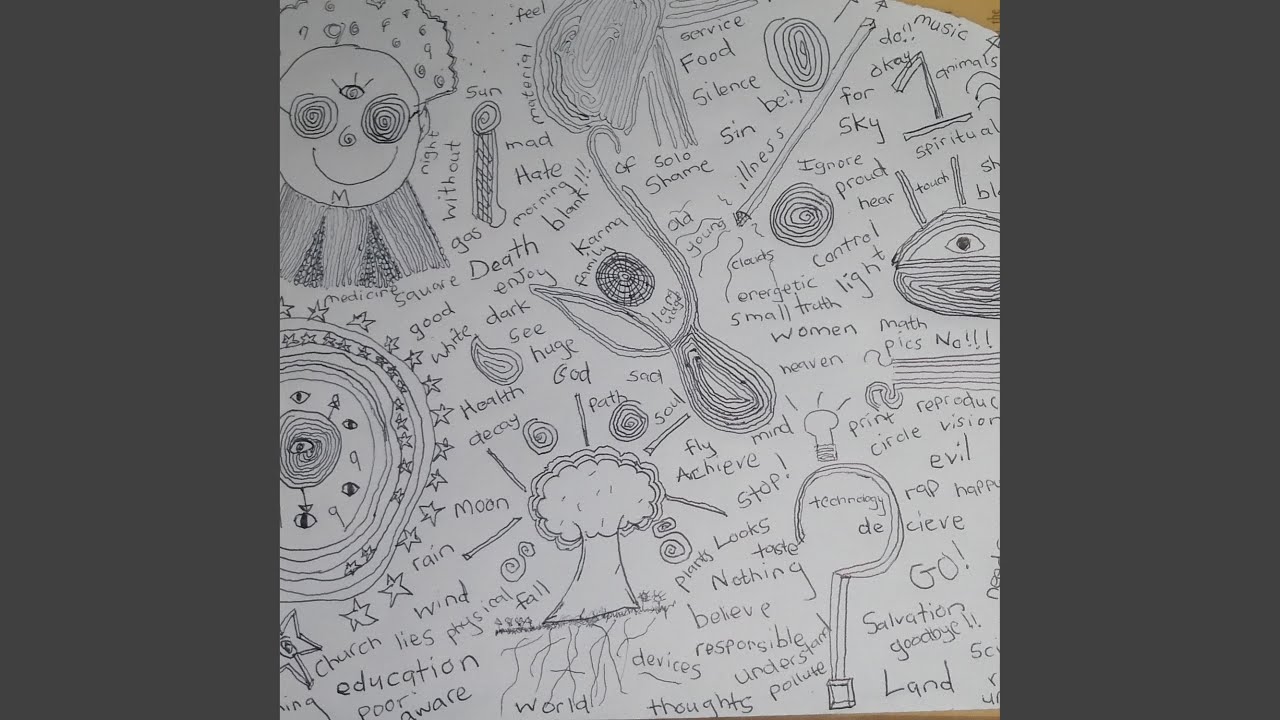 feel
service
Food
Silence
be!!
do!!
music
okay
animals
1
for
sky
spiritual
material
Sun
mad
Hate
morning
blank!!!
night
without
gas
Death
of
solo
Shame
Sin
illness
Ignore
proud
hear
touch
M
medicine
square
good
white
enjoy
dark
see
huge
God
Karma
family
Language
old
young
clouds
energetic
small truth
light
control
women
math
pics No!!!
heaven
sad
soul
Path
Health
decay
fly
mind
Achieve
Stop!
print
reproduc
circle vision
evil
rap happy
technology
decieve
GO!
Moon
rain
wind
physical
fall
plants
Looks
taste
Nothing
believe
responsible
understand
pollute
Salvation
goodbye!!
Land
church lies
education
poor
aware
world
devices
thoughts